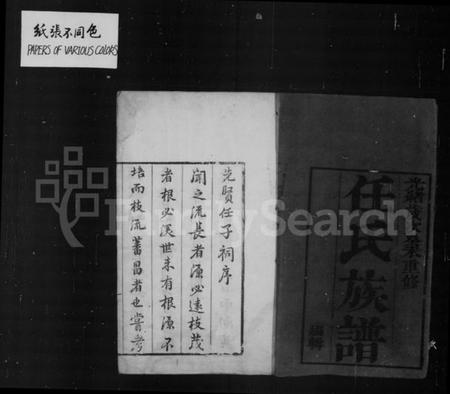 紙張不同色
PAPERS OF VARIOUS COLORS
重修
任氏族譜
編輯
先賢任子祠序
聞之流長者源必遠枝茂
者根必深世未有根源不
培而枝流蕃昌者也嘗考
FamilySearch